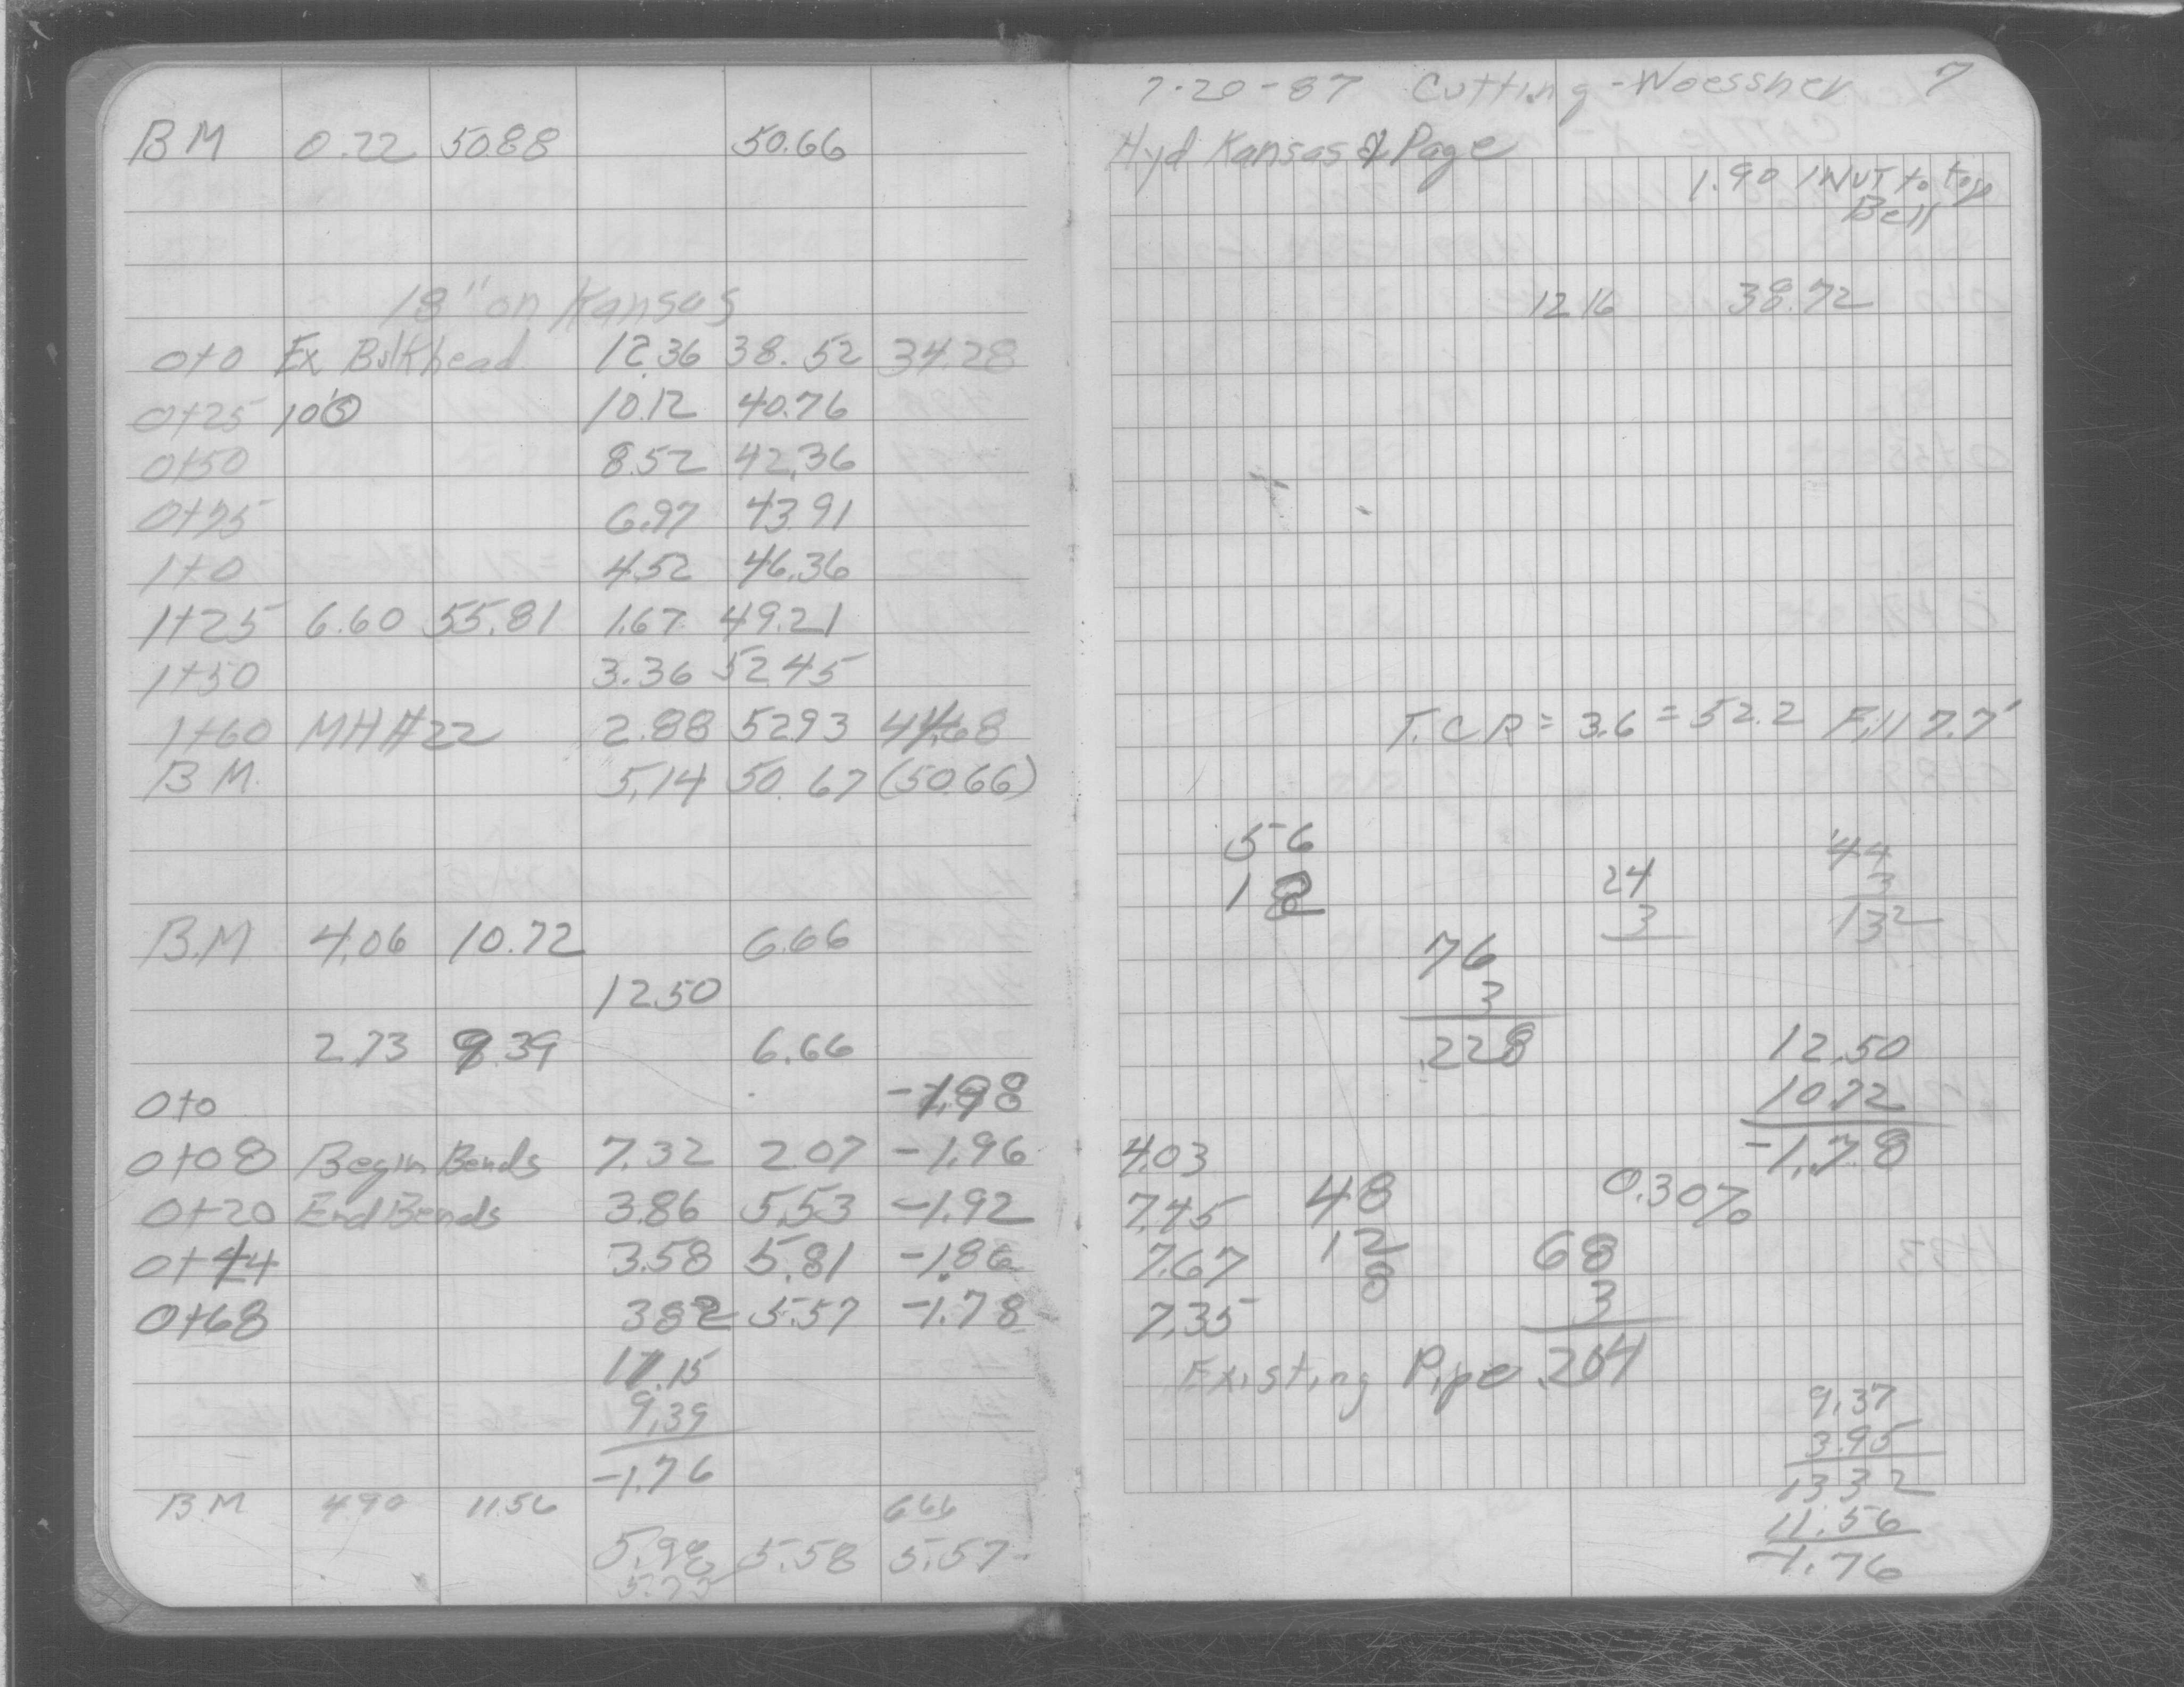 BM 0.22 50.88 50.66
18" on Kansas
0+0 Ex Bulkhead 12.36 38.52 34.28
0+25 10.12 40.76
0+50 8.52 42.36
0+75 6.97 43.91
1+0 4.52 46.36
1+25 6.60 55.81 1.67 49.21
1+50 3.36 52.45
1+60 MH#22 2.88 52.93 44.68
B.M. 5.14 50.67 (50.66)
B.M 4.06 10.72 6.66
12.50
2.73 9.39 6.66
0+0 -1.98
0+08 Begin Bends 7.32 2.07 -1.96
0+20 End Bends 3.86 5.53 -1.92
0+44 3.58 5.81 -1.86
0+68 3.82 5.57 -1.78
11.15
9.39
-1.76
B.M 4.90 11.56 6.66
5.98 5.58 5.57
7-20-87 Cutting-Woessner 7
Hyd Kansas & Page
1.90 INUT to top
Bell
12 16 38.72
T.C.R = 3.6 = 52.2 Fill 7.7'
56
18
24
3
44
3
132
76
3
.228
12.50
10.72
-1.78
4.03
7.45
7.67
7.35
48
12
8
0.30%
68
3
.204
Existing Pipe
9.37
3.95
13.32
11.56
-1.76